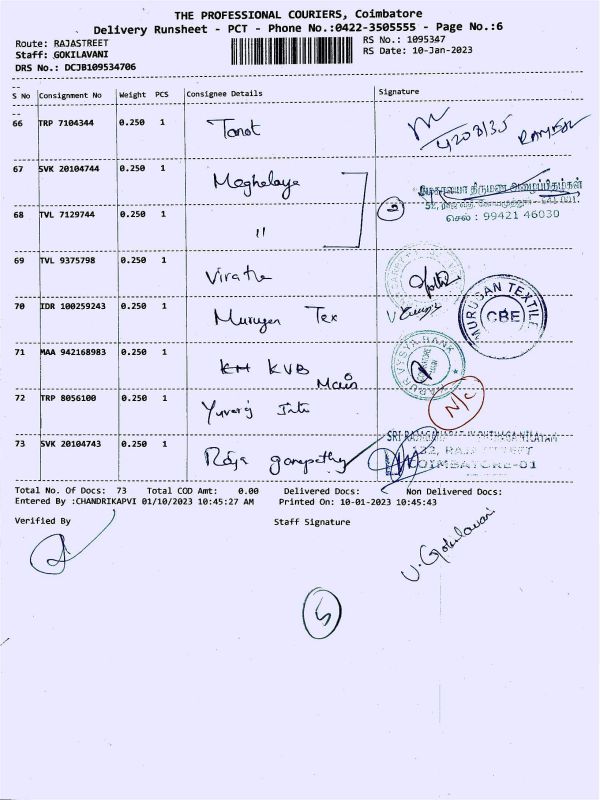 THE PROFESSIONAL COURIERS, Coimbatore
Delivery Runsheet - PCT - Phone No.:0422-3505555 - Page No.:6
Route: RAJASTREET
RS No.: 1095347
Staff: GOKILAVANI
RS Date: 10-Jan-2023
DRS No.: DCJB109534706
S No Consignment No Weight PCS Consignee Details Signature
66 TRP 7104344 0.250 1 Tanot
67 SVK 20104744 0.250 1 Meghalaya
68 TVL 7129744 0.250 1 "
2
செல் : 99421 46030
69 TVL 9375798 0.250 1
70 IDR 100259243 0.250 1 Murugan Tex
MURUGAN TEXTILE
CBE
71 MAA 942168983 0.250 1 KVB
Main
KARUR VYSYA BANK
72 TRP 8056100 0.250 1 Yuvaraj
N/C
73 SVK 20104743 0.250 1 Raja ganapathy
COIMBATORE-01
Total No. Of Docs: 73 Total COD Amt: 0.00 Delivered Docs: Non Delivered Docs:
Entered By :CHANDRIKAPVI 01/10/2023 10:45:27 AM Printed On: 10-01-2023 10:45:43
Verified By Staff Signature
V. Gokilavani
5